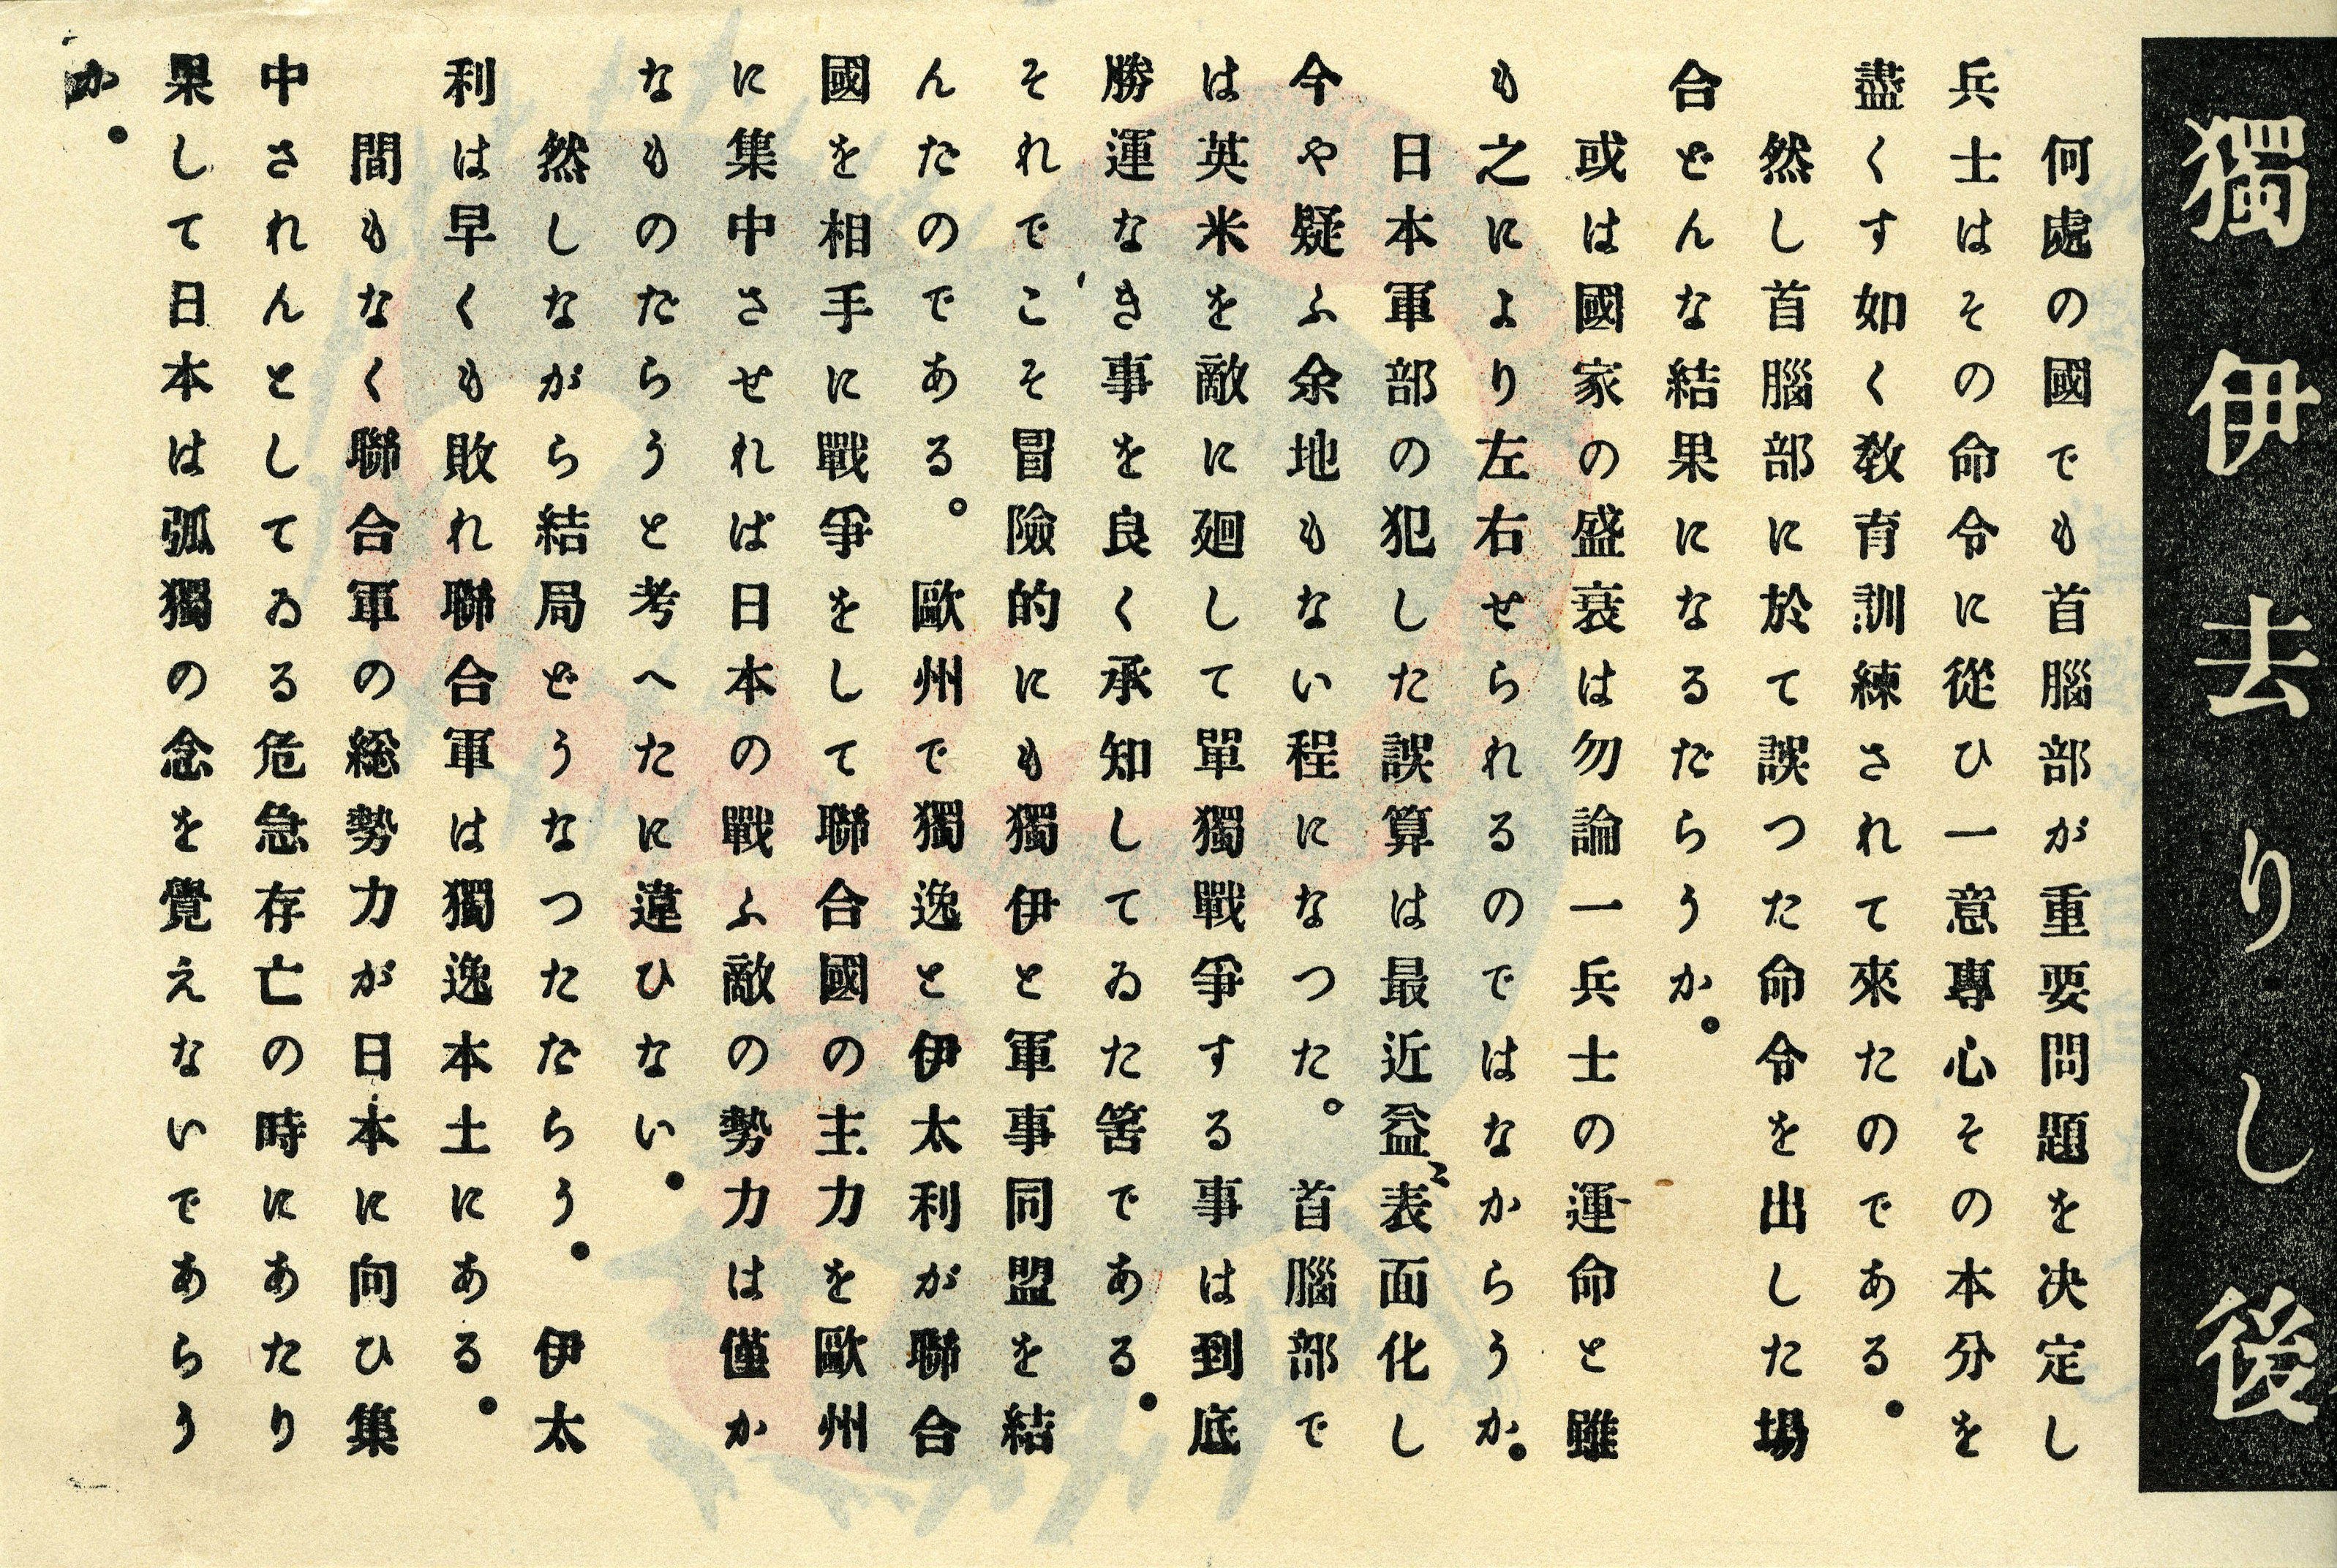 獨伊去りし後
何處の國でも首腦部が重要問題を決定し
兵士はその命令に從ひ一意專心その本分を
盡くす如く敎育訓練されて來たのである。
然し首腦部に於て誤つた命令を出した場
合どんな結果になるだらうか。
或は國家の盛衰は勿論一兵士の運命と雖
も之により左右せられるのではなからうか。
日本軍部の犯した誤算は最近益〻表面化し
今や疑ふ余地もない程になつた。首腦部で
は英米を敵に廻して單獨戰爭する事は到底
勝運なき事を良く承知してゐた筈である。
それでこそ冒險的にも獨伊と軍事同盟を結
んだのである。歐州で獨逸と伊太利が聯合
國を相手に戰爭をして聯合國の主力を歐州
に集中させれば日本の戰ふ敵の勢力は僅か
なものだらうと考へたに違ひない。
然しながら結局どうなつただらう。伊太
利は早くも敗れ聯合軍は獨逸本土にある。
間もなく聯合軍の総勢力が日本に向ひ集
中されんとしてゐる危急存亡の時にあたり
果して日本は弧獨の念を覺えないであらう
か。